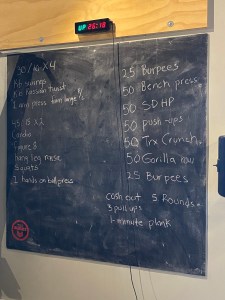 UP 26:18
30/10 X4
Kb swings
Kb Russian twist
1 arm press
45/15 X2
Cardio
Figure 8
hang leg raise
Squats
2 hands on ball press
25 Burpees
50 Bench press
50 SDHP
50 push-ups
50 Trx Crunch
50 Gorilla row
25 Burpees
cash out 5 Rounds
3 pull ups
1-minute plank